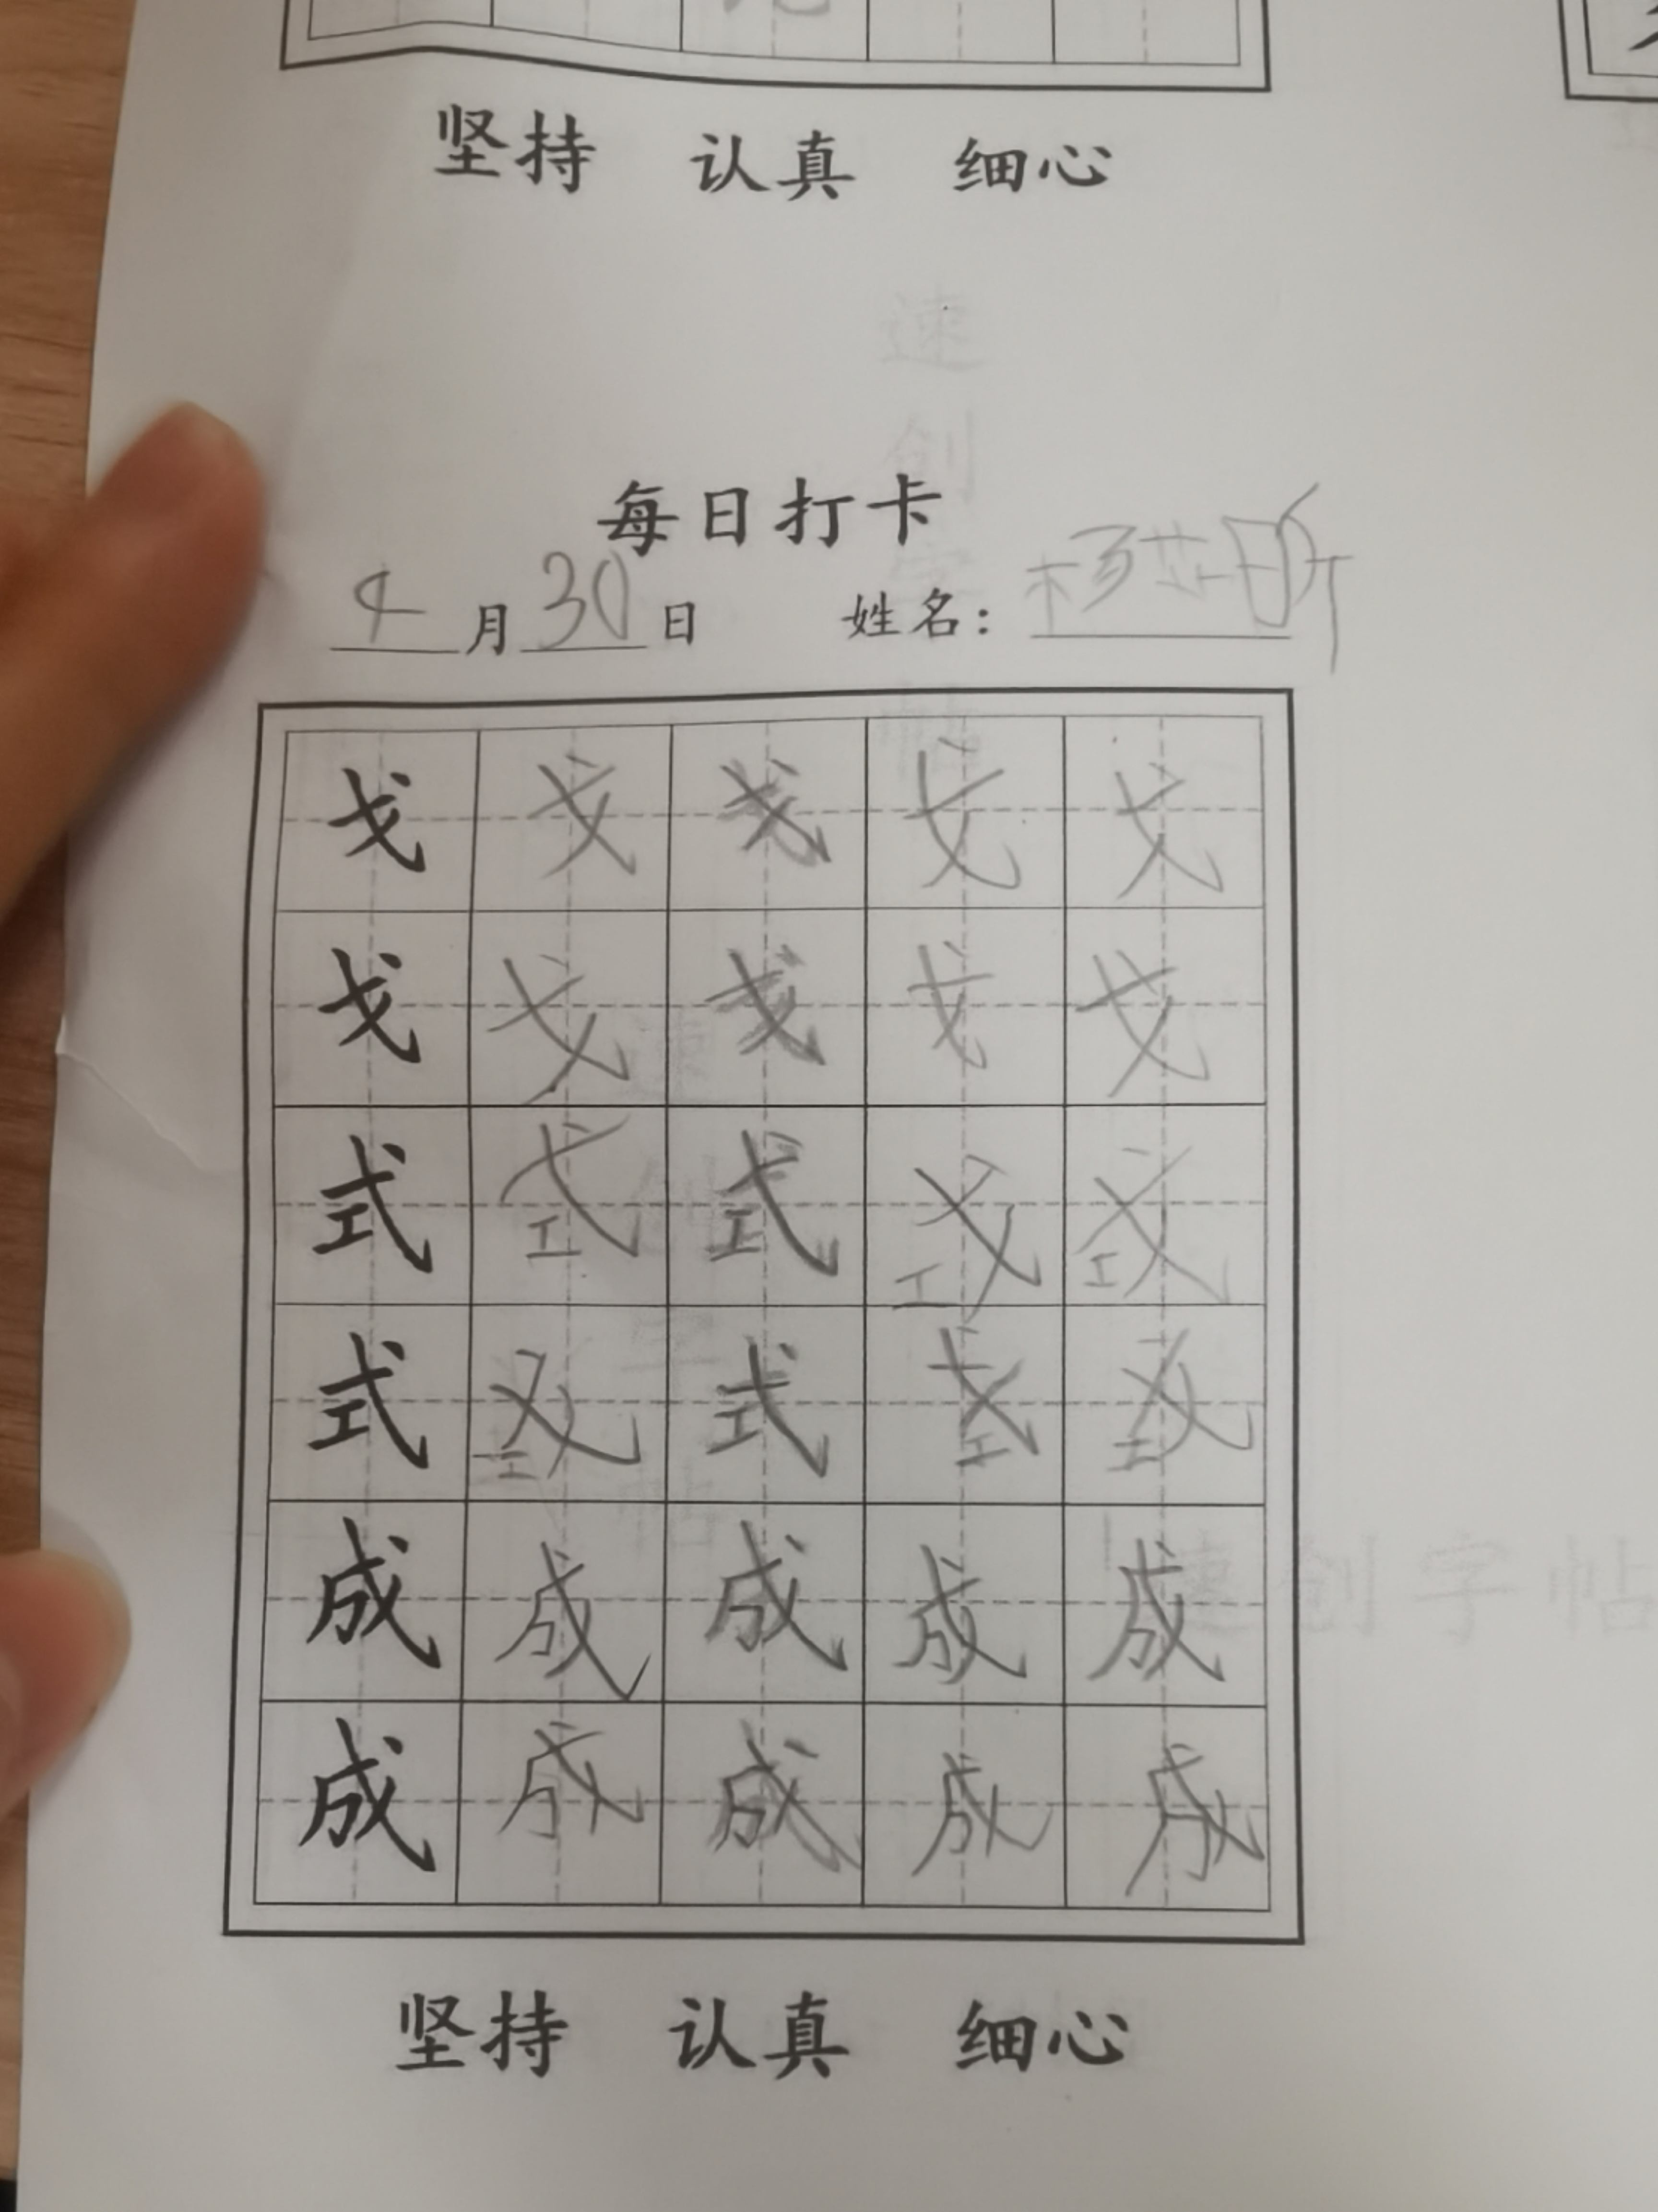 坚持 认真 细心
每日打卡
4月30日 姓名：杨芷昕
戈 戈 戈 戈 戈
戈 戈 戈 戈 戈
式 式 式 式 式
式 式 式 式 式
成 成 成 成 成
成 成 成 成 成
坚持 认真 细心
速创字帖